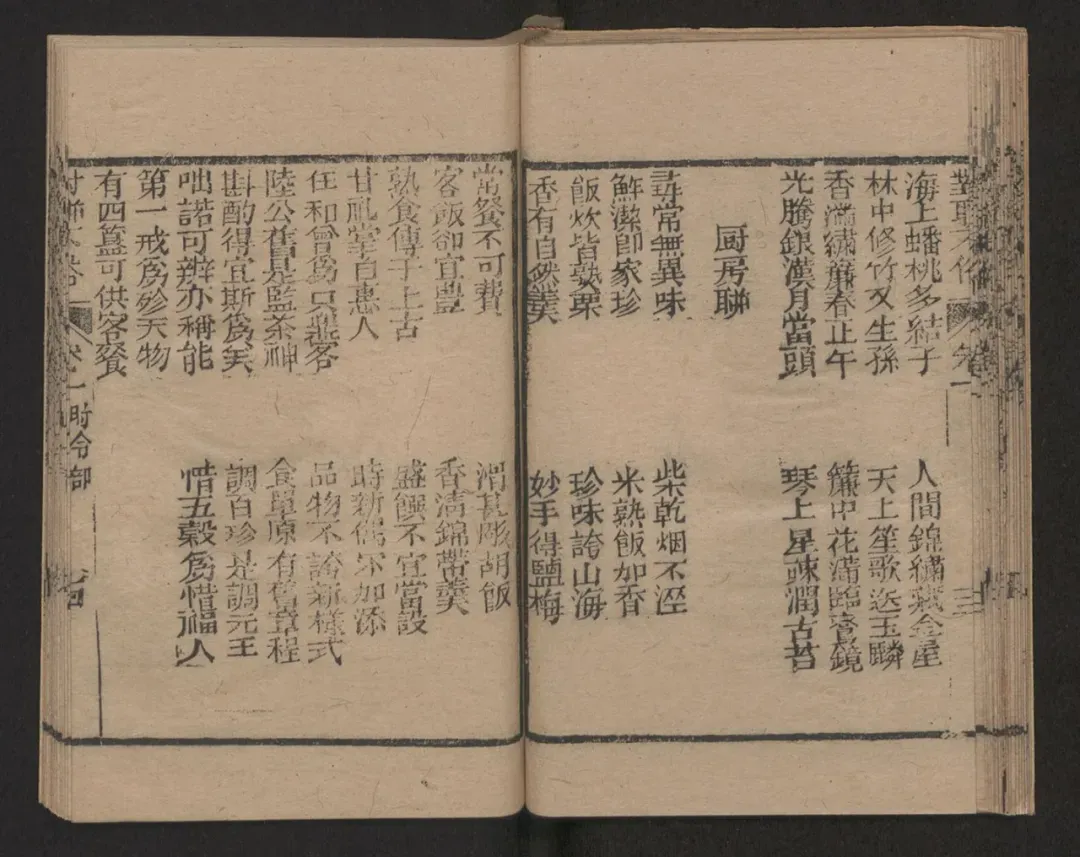 對聯不俗 卷一
海上蟠桃多結子 人間錦繡藏金屋
林中修竹又生孫 天上笙歌送玉麟
香滿繡簾春正午 簾中花滿臨鸞鏡
光騰銀漢月當頭 琴上星疎潤古苔
厨房聯
尋常無異味 柴乾烟不溼
鮮潔卽家珍 米熟飯加香
飯炊皆熟栗 珍味誇山海
香有自然羹 妙手得鹽梅
常餐不可費 滑甚彫胡飯
客飯卻宜豊 香清錦帶羹
熟食傳于上古 盛饌不宜當設
甘祀掌自惠人 時新偶尓加添
任和曾爲只燕客 品物不誇新樣式
陸公舊是監茶神 食單原有舊章程
斟酌得宜斯爲美 調百珍是調元王
咄諾可辨亦稱能 惜五穀爲惜福人
第一戒爲殄天物
有四簋可供客餐
卷一 時令部